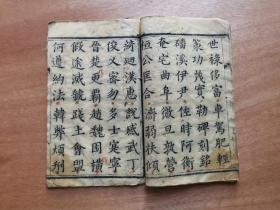 世祿侈富車駕肥輕
策功茂實勒碑刻銘
磻溪伊尹佐時阿衡
奄宅曲阜微旦孰營
桓公匡合濟弱扶傾
綺迴漢惠說感武丁
俊乂密勿多士寔寧
晉楚更霸趙魏困橫
假途滅虢踐土會盟
何遵約法韓弊煩刑